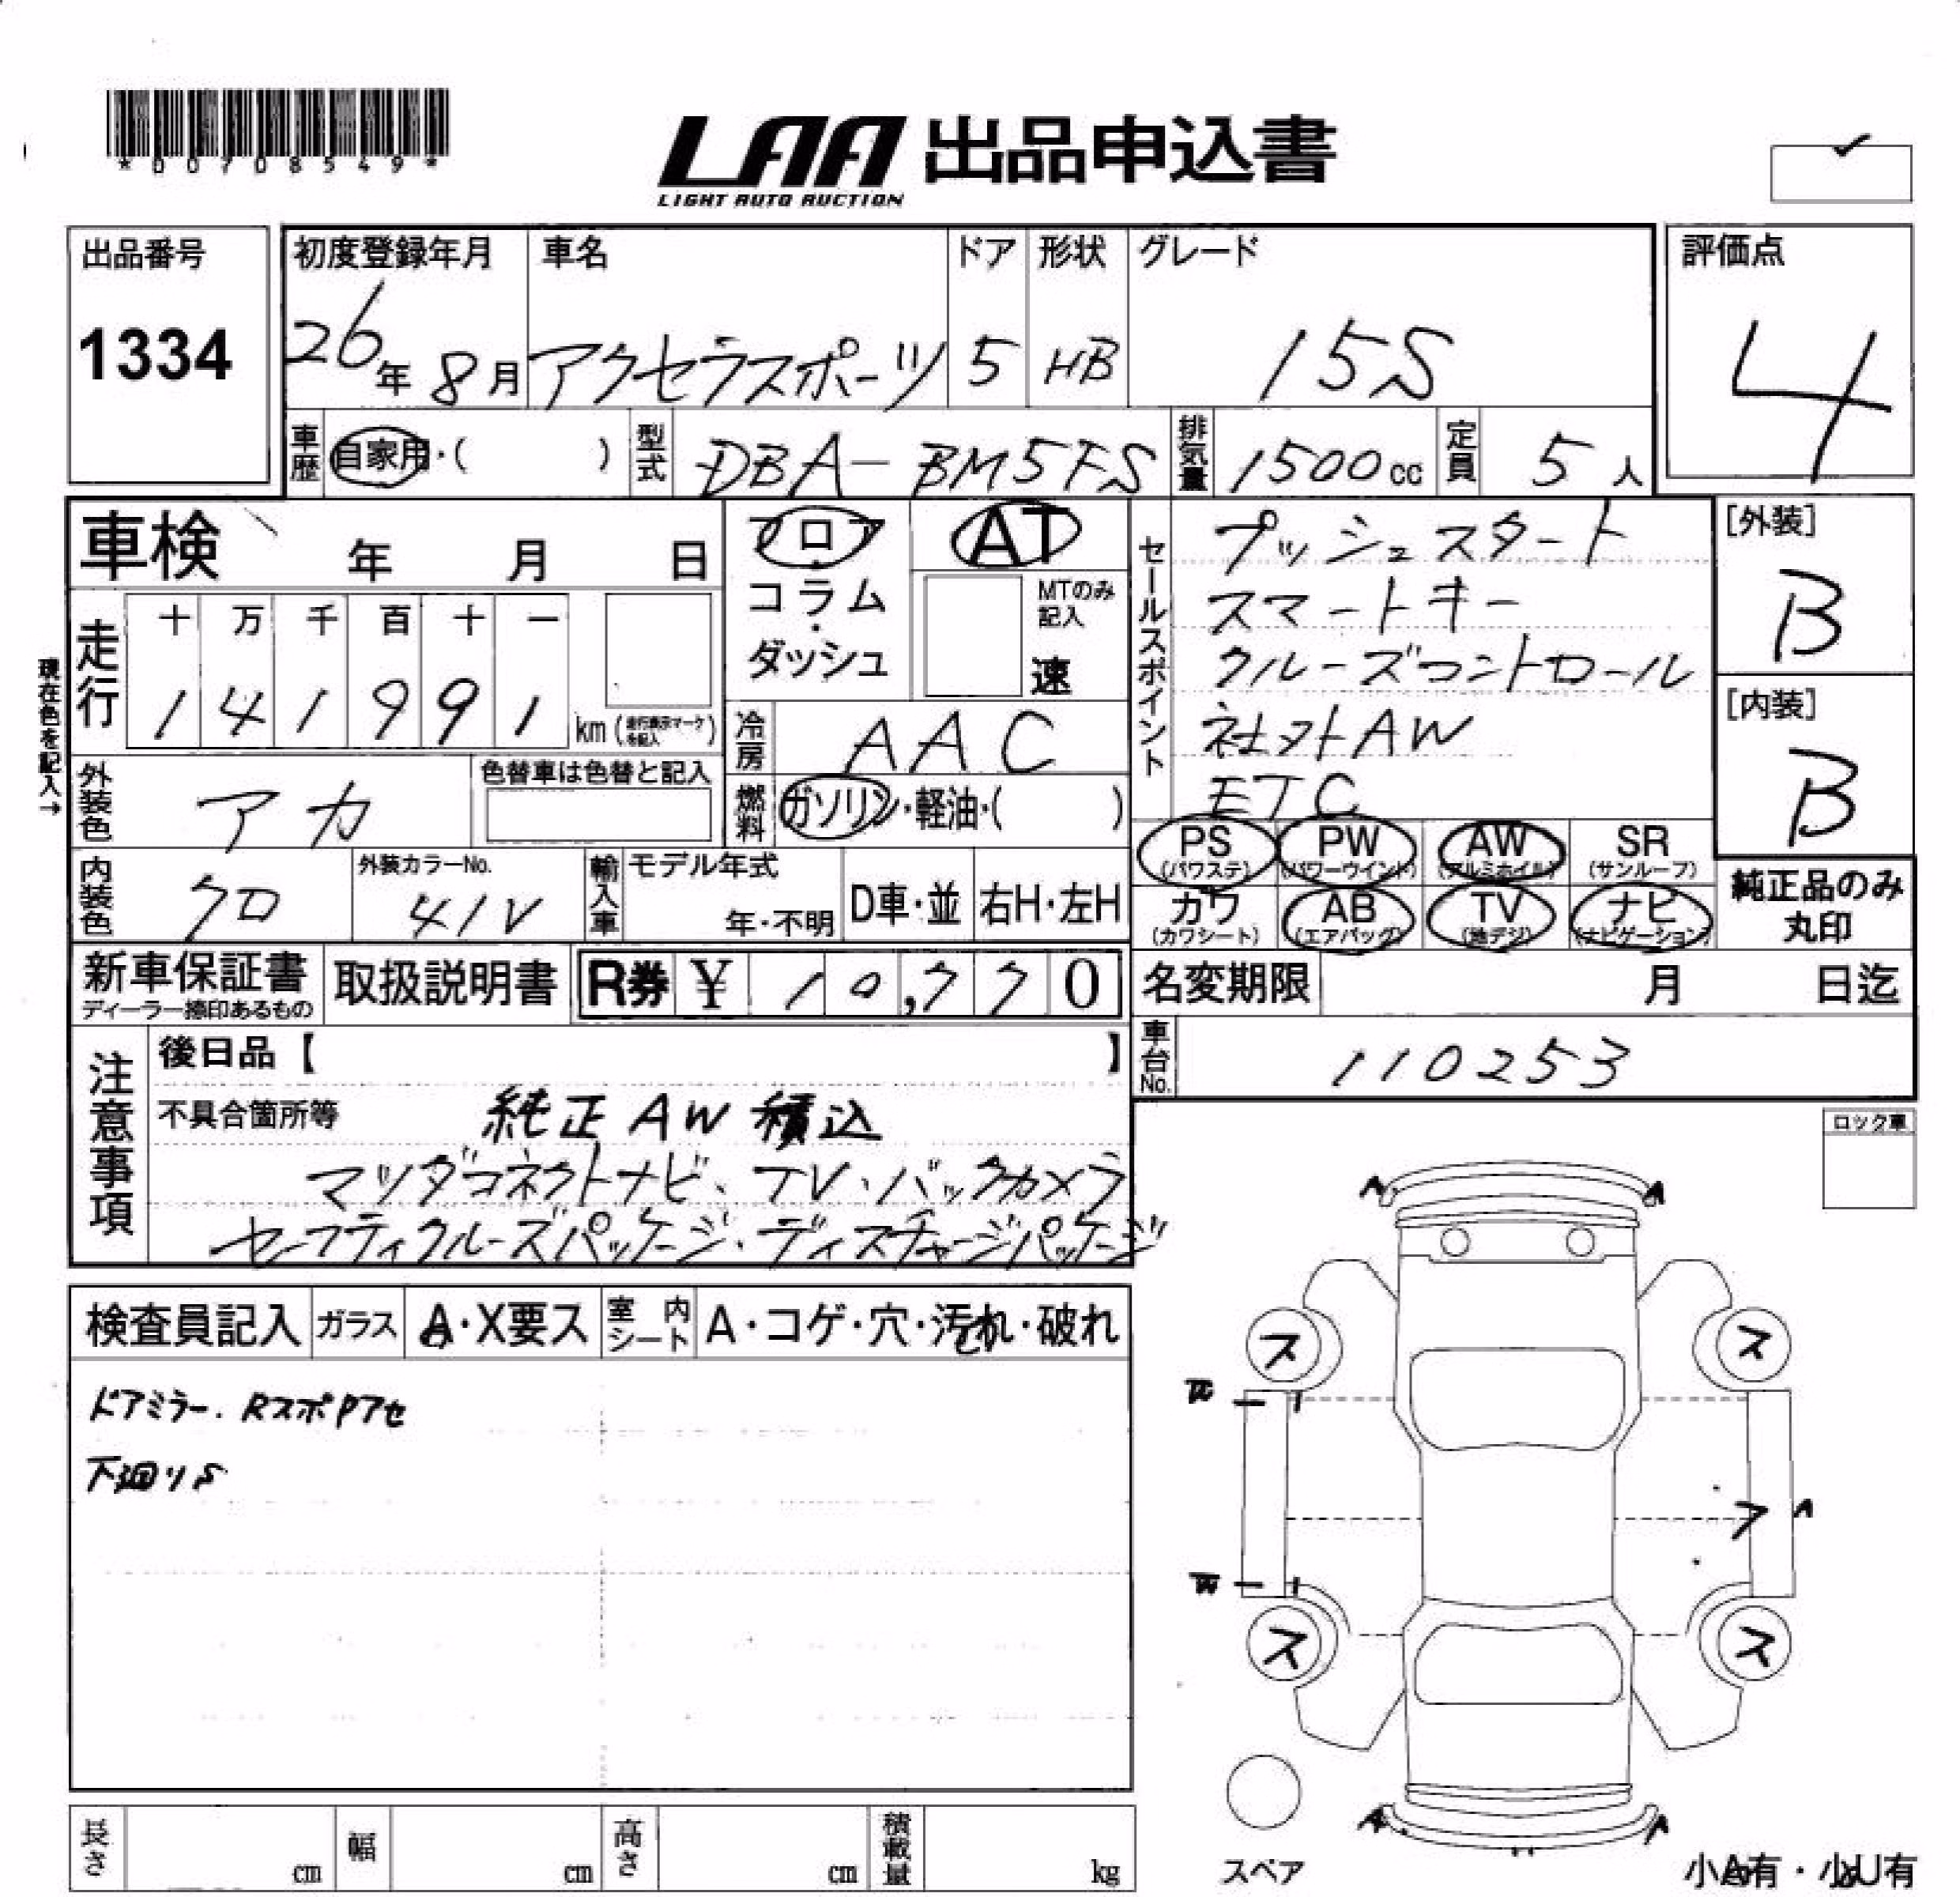 *00708549*
LAA 出品申込書
LIGHT AUTO AUCTION
出品番号
1334
初度登録年月
26年 8月
車名
アクセラスポーツ
ドア
5
形状
HB
グレード
15S
評価点
4
車歴 自家用・( )
型式 DBA-BM5FS
排気量 1500cc
定員 5人
車検 年 月 日
フロア
コラム
・
ダッシュ
AT
MTのみ記入
速
セールスポイント
プッシュスタート
スマートキー
クルーズコントロール
社外AW
ETC
[外装]
B
[内装]
B
現在色を記入→
走行
十 万 千 百 十 一
1 4 1 9 9 1 km (走行表示マークを記入)
冷房 AAC
外装色 アカ
色替車は色替と記入
燃料 ガソリン・軽油・( )
PS (パワステ) PW (パワーウインド) AW (アルミホイル) SR (サンルーフ)
カワ (カワシート) AB (エアバッグ) TV (地デジ) ナビ (ナビゲーション)
純正品のみ
丸印
内装色 クロ
外装カラーNo.
41V
輸入車
モデル年式
年・不明
D車・並
右H・左H
新車保証書
ディーラー捺印あるもの
取扱説明書
R券 ¥ 10,770
名変期限 月 日迄
車台No. 110253
注意事項
後日品【 】
不具合箇所等 純正AW積込
マツダコネクトナビ、TV、バックカメラ
セーフティクルーズパッケージ・ディスチャージパッケージ
ロック車
検査員記入 ガラス A・X要ス 室内シート A・コゲ・穴・汚れ・破れ
ドアミラー、RスポPアセ
下廻りS
A A
ス ス
W
フ A
W
ス ス
A A
スペア
小A有・小U有
長さ cm 幅 cm 高さ cm 積載量 kg